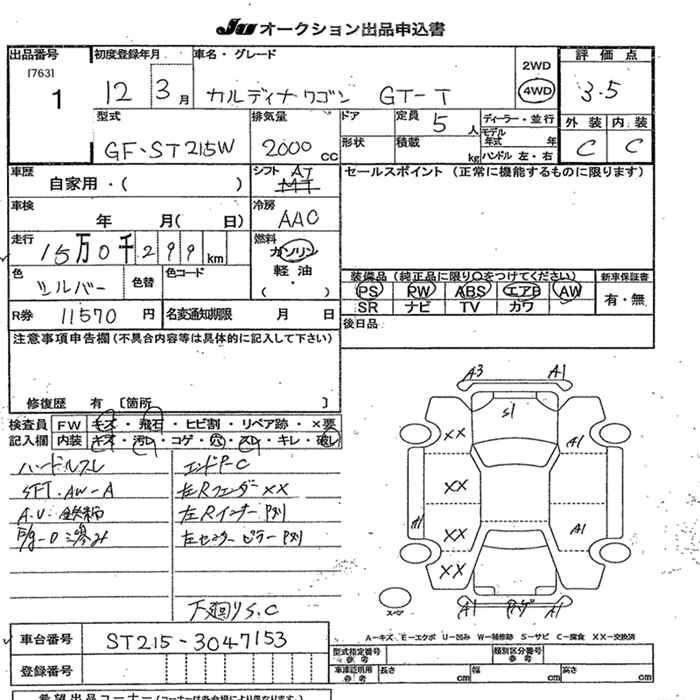 JU オークション出品申込書
出品番号 初度登録年月 車名・グレード 評価点
17631 2WD
1 12 3月 カルディナワゴン GT-T 4WD 3.5
型式 排気量 ドア 定員 5人 ディーラー・並行 外装 内装
GF-ST215W 2000cc 形状 積載 kg モデル年式 年 ハンドル 左・右 C C
車歴 シフト AT MT セールスポイント(正常に機能するものに限ります)
自家用・( )
車検 年 月( 日) 冷房 AAC
走行 15万0千299km 燃料 ガソリン
軽油・( )
色 シルバー 色替 色コード 装備品(純正品に限り○をつけてください) 新車保証書
PS PW ABS エアB AW 有・無
SR ナビ TV カワ
R券 11570円 名変通知期限 月 日 後日品
注意事項申告欄(不具合内容等は具体的に記入して下さい)
修復歴 有 〔箇所 〕
検査員 FW キズ・飛石・ヒビ割・リペア跡・×要
記入欄 内装 キズ・汚れ・コゲ・穴・スレ・キレ・破れ
ハンドルスレ
SFT.AW-A
エンドP-C
左Rフェンダー XX
左Rインナー
左センターピラー
下廻りS.C
A3 A1
S1
XX A1
XX
A1 XX A1
XX
A1 A1
スペア
A-キズ E-エクボ U-凹み W-補修跡 S-サビ C-腐食 XX-交換済
車台番号 ST215-3047153
型式指定番号 参考 類別区分番号 参考
登録番号 車庫証明用 参考 長さ cm 幅 cm 高さ cm
希望出品コーナー